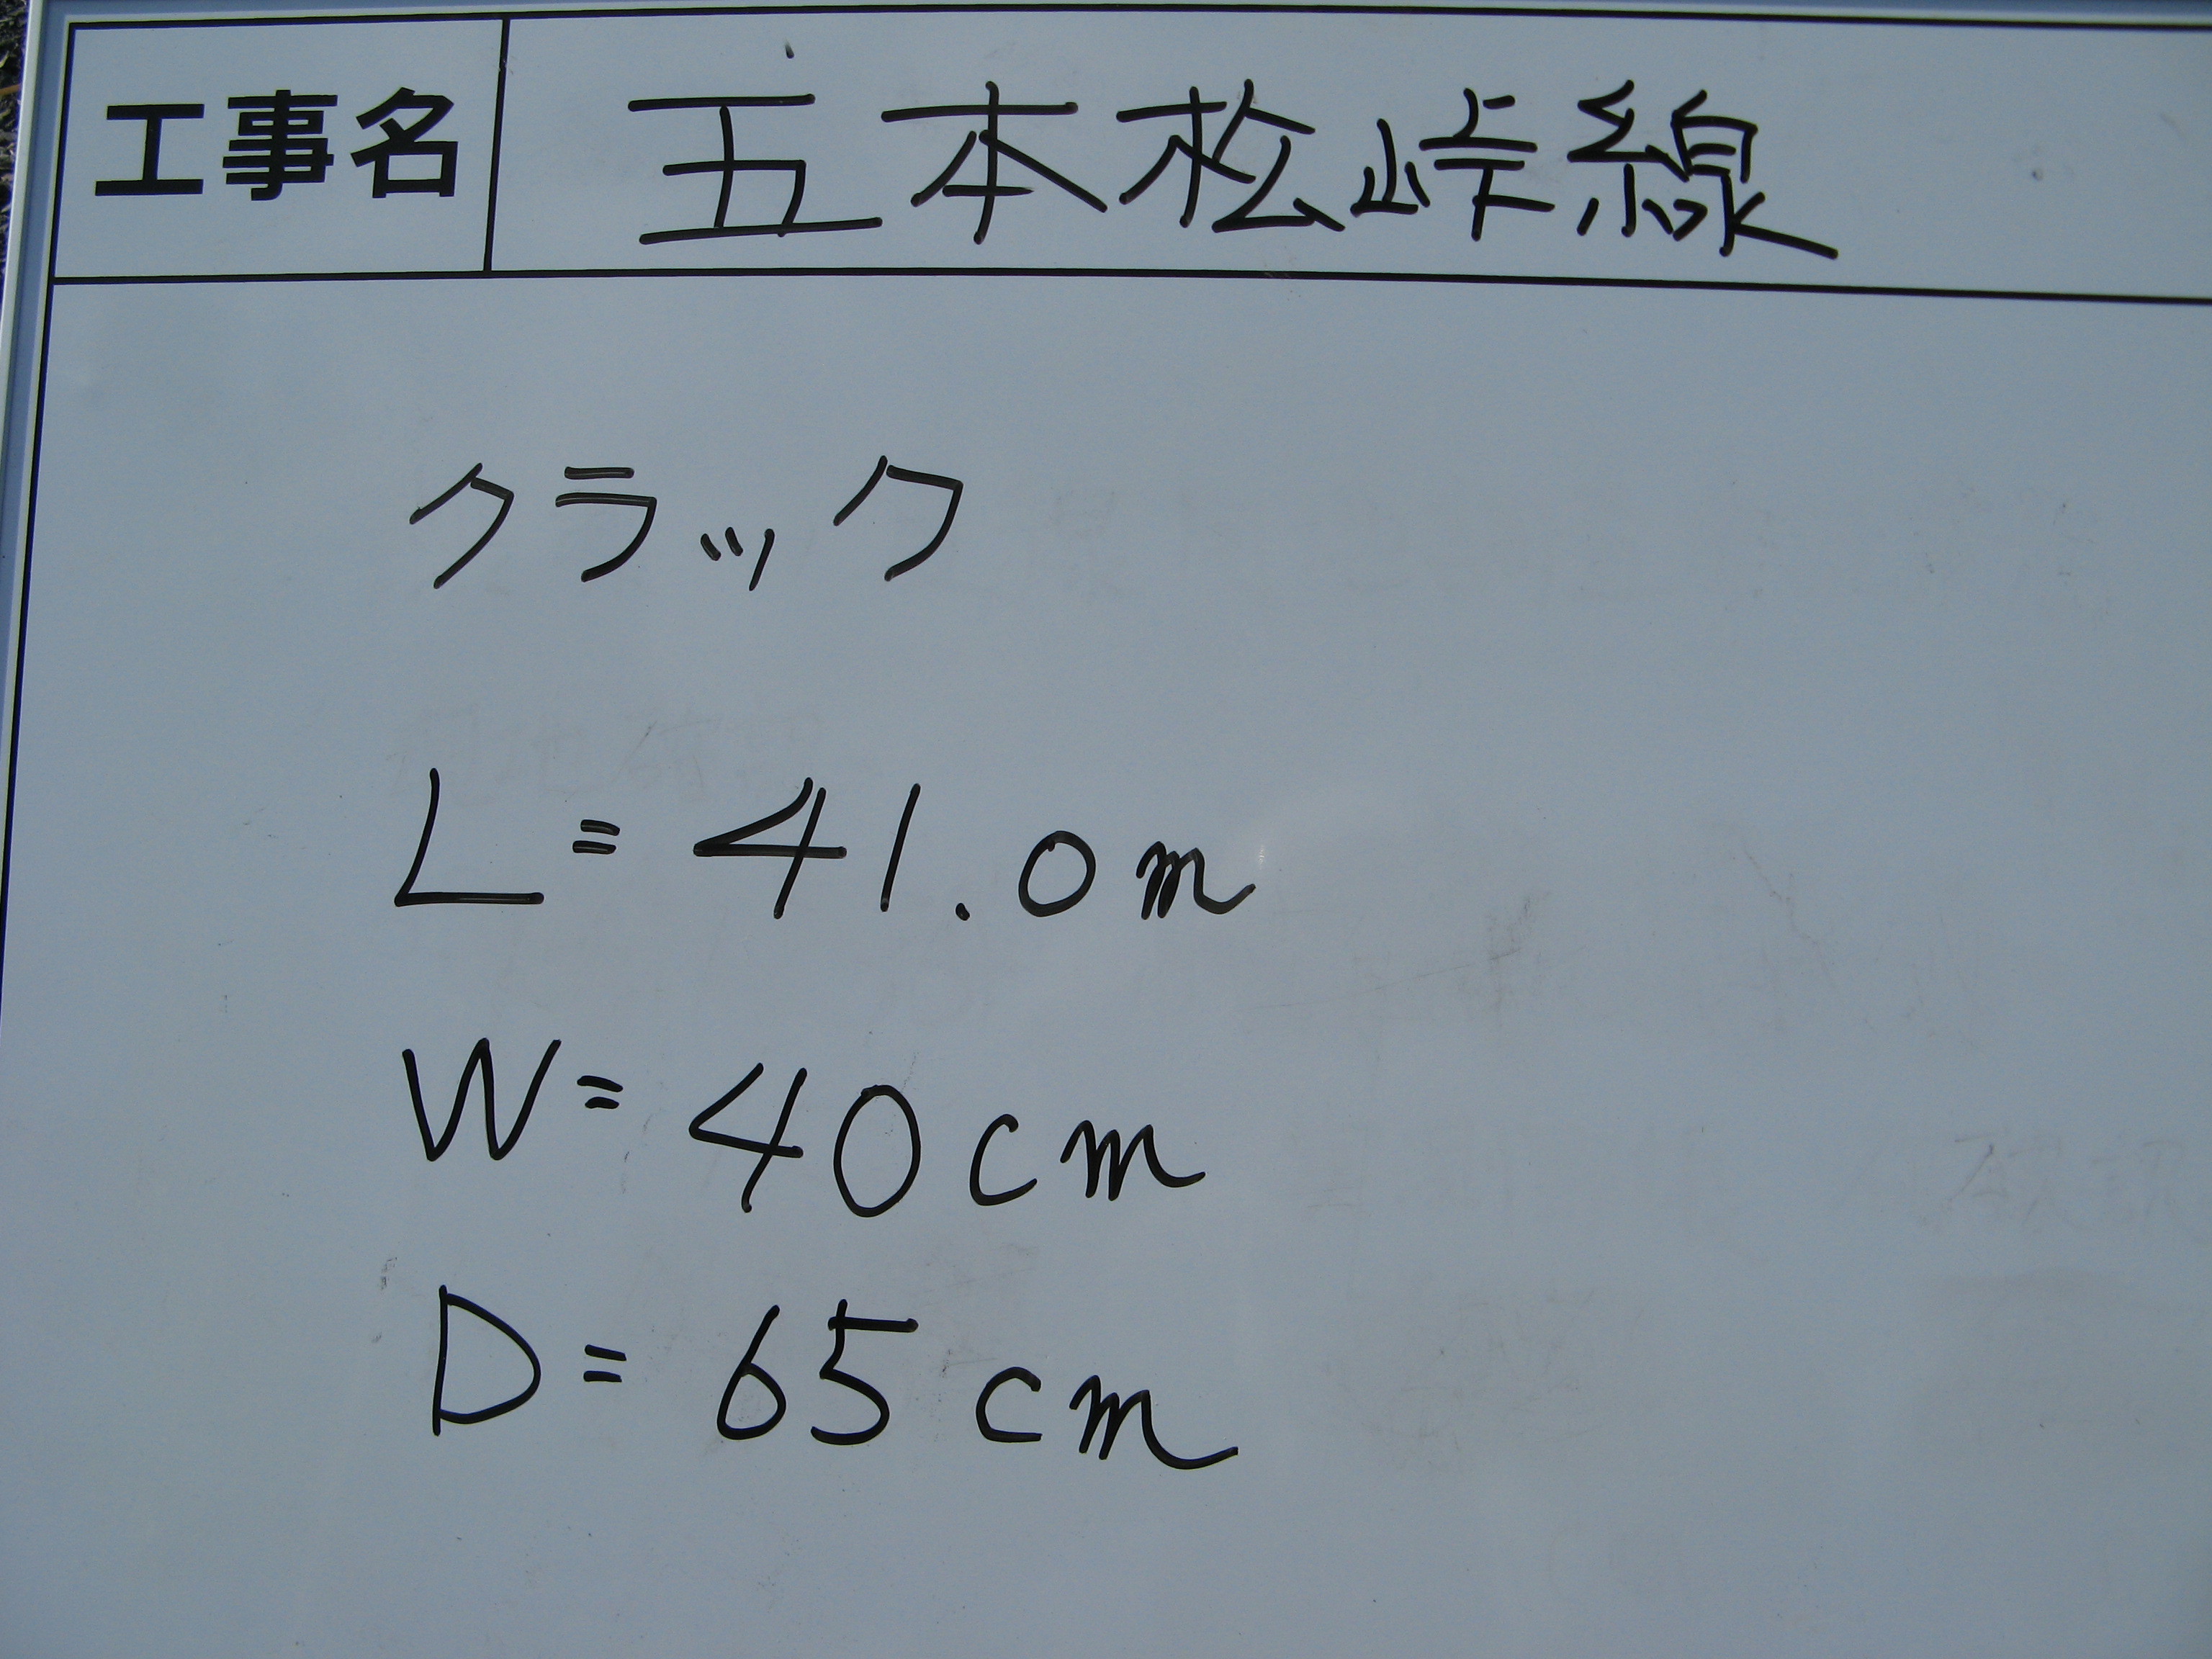 工事名 五本松峠線
クラック
L=41.0m
W=40cm
D=65cm